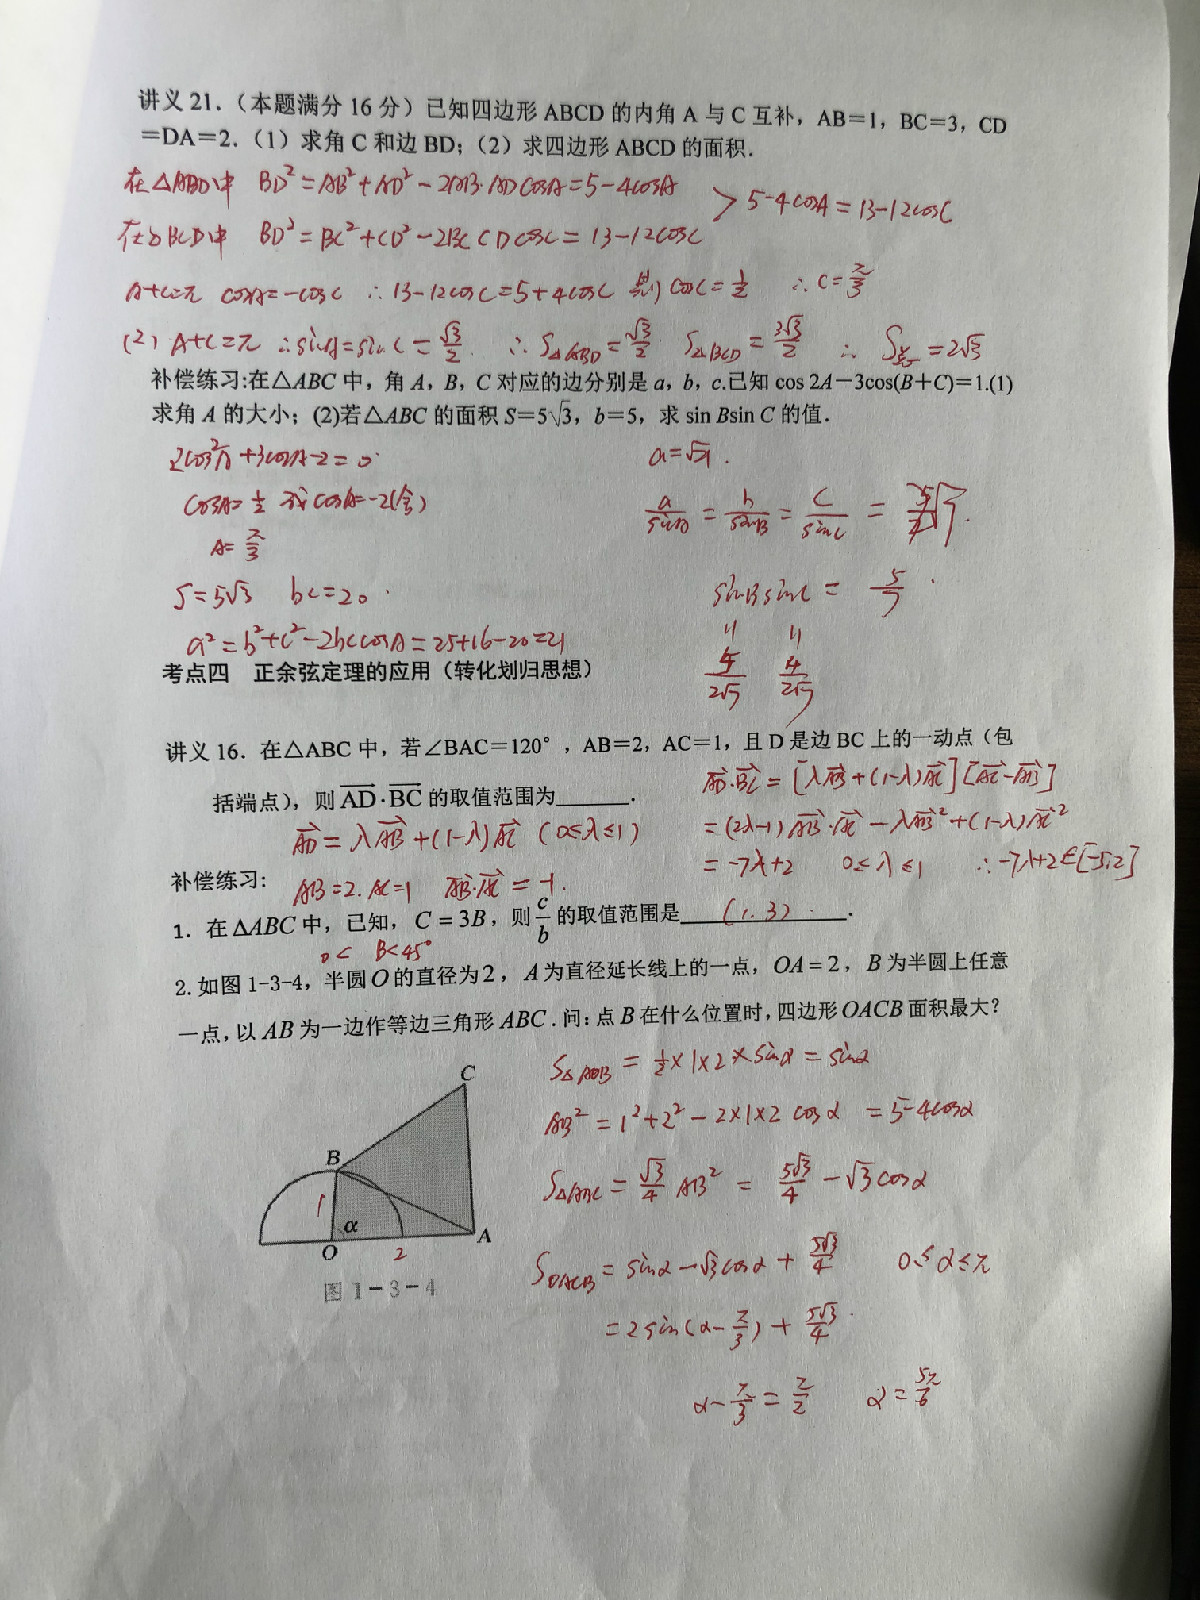 讲义 21．（本题满分 16 分）已知四边形 ABCD 的内角 A 与 C 互补，AB＝1，BC＝3，CD
＝DA＝2．（1）求角 C 和边 BD；（2）求四边形 ABCD 的面积．
在△ABD中 BD²=AB²+AD²-2AB·ADcosA=5-4cosA
>5-4cosA=13-12cosC
在△BCD中 BD²=BC²+CD²-2BC CDcosC=13-12cosC
A+C=π cosA=-cosC ∴13-12cosC=5+4cosC 則 cosC=1/2 ∴C=π/3
(2) A+C=π ∴sinA=sinC=√3/2 ∴S△ABD=√3/2 S△BCD=3√3/2 ∴ S =2√3
补偿练习:在△ABC 中，角 A，B，C 对应的边分别是 a，b，c.已知 cos 2A－3cos(B＋C)＝1.(1)
求角 A 的大小；(2)若△ABC 的面积 S＝5√3，b＝5，求 sin Bsin C 的值．
2cos²A+3cosA-2=0
a=√21.
cosA=1/2 或cosA=-2(舍)
a/sinA = b/sinB = c/sinC =
A=π/3
S=5√3 bc=20
sinBsinC = 5/7
a²=b²+c²-2bccosA=25+16-20=21
5/2√7 4/2√7
考点四 正余弦定理的应用（转化划归思想）
讲义 16．在△ABC 中，若∠BAC＝120°，AB＝2，AC＝1，且 D 是边 BC 上的一动点（包
括端点），则AD·BC的取值范围为______．
AD·BC=[λAB+(1-λ)AC][AC-AB]
AD=λAB+(1-λ)AC (0≤λ≤1)
=(2λ-1)AB·AC-λAB²+(1-λ)AC²
=-7λ+2 0≤λ≤1 ∴-7λ+2∈[-5,2]
补偿练习:
AB=2. AC=1 AB·AC=-1.
1．在△ABC 中，已知，C=3B，则c/b的取值范围是 (1.3) ．
0< B<45°
2.如图 1-3-4，半圆O的直径为2，A为直径延长线上的一点，OA=2，B为半圆上任意
一点,以AB为一边作等边三角形ABC.问:点B在什么位置时,四边形OACB面积最大?
S△AOB=1/2×1×2×sinα=sinα
AB²=1²+2²-2×1×2cosα=5-4cosα
S△ABC=√3/4 AB²=5√3/4-√3cosα
SOACB=sinα-√3cosα+5√3/4 0≤α≤π
=2sin(α-π/3)+5√3/4
α-π/3=π/2 α=5π/6
C
B
1
α
O
2
A
图 1-3-4